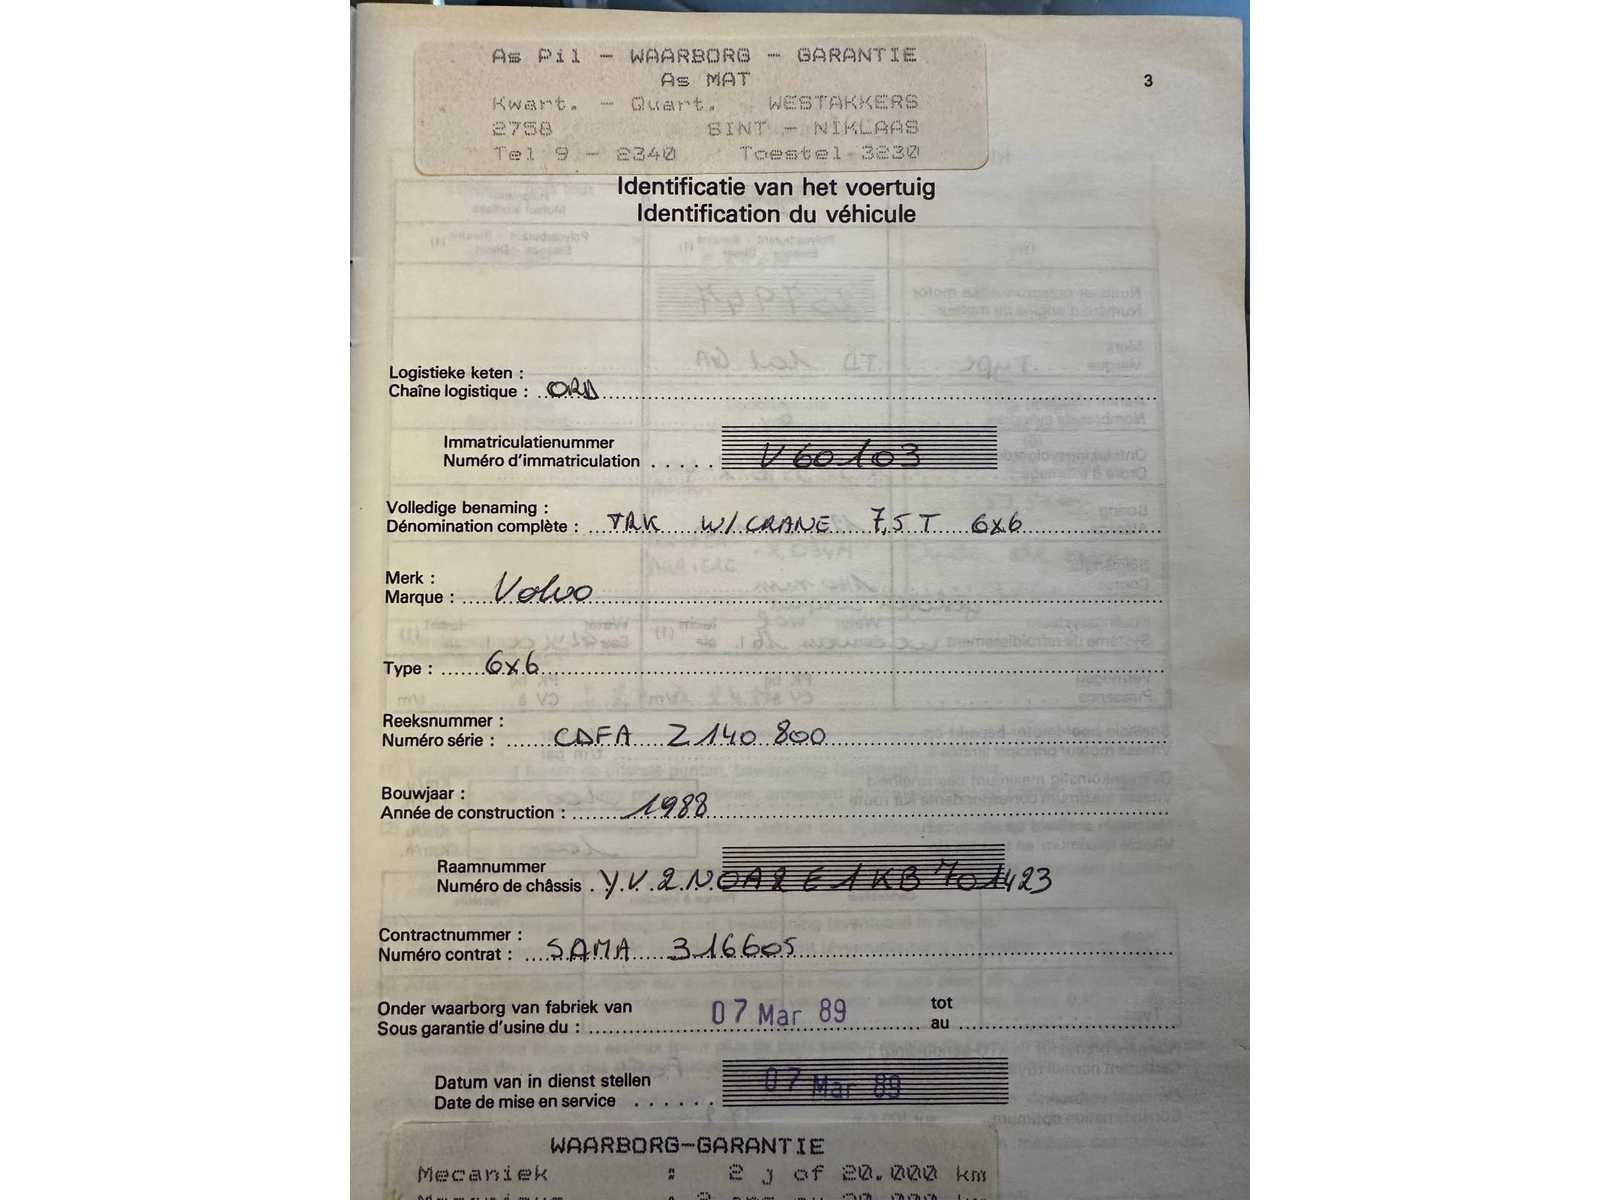 As Pil - WAARBORG - GARANTIE
As MAT
3
Kwart. - Quart. WESTAKKERS
2758 SINT - NIKLAAS
Tel 9 - 2340 Toestel 3230
Identificatie van het voertuig
Identification du véhicule
Logistieke keten :
Chaîne logistique : ORD
Immatriculatienummer
Numéro d'immatriculation ..... V60103
Volledige benaming :
Dénomination complète : TRK W/CRANE 7,5T 6x6
Merk :
Marque : Volvo
Type : 6x6
Reeksnummer :
Numéro série : CDFA Z140 800
Bouwjaar :
Année de construction : 1988
Raamnummer
Numéro de châssis . Y.V.2.N0A2E1KB701423
Contractnummer :
Numéro contrat : SAMA 316605
Onder waarborg van fabriek van tot
Sous garantie d'usine du : 07 Mar 89 au
Datum van in dienst stellen
Date de mise en service ...... 07 Mar 89
WAARBORG-GARANTIE
Mecaniek : 2 j of 20.000 km